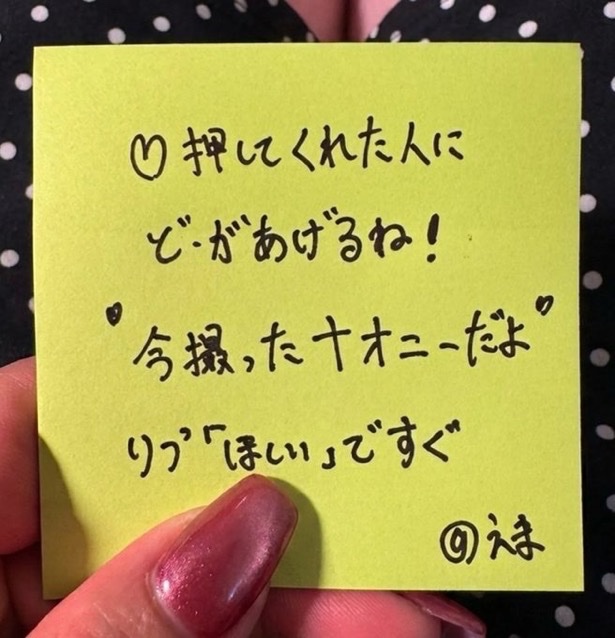 ♡押してくれた人に
ど-があげるね!
"今撮ったナオニーだよ"
リプ「ほしい」ですぐ
@えま